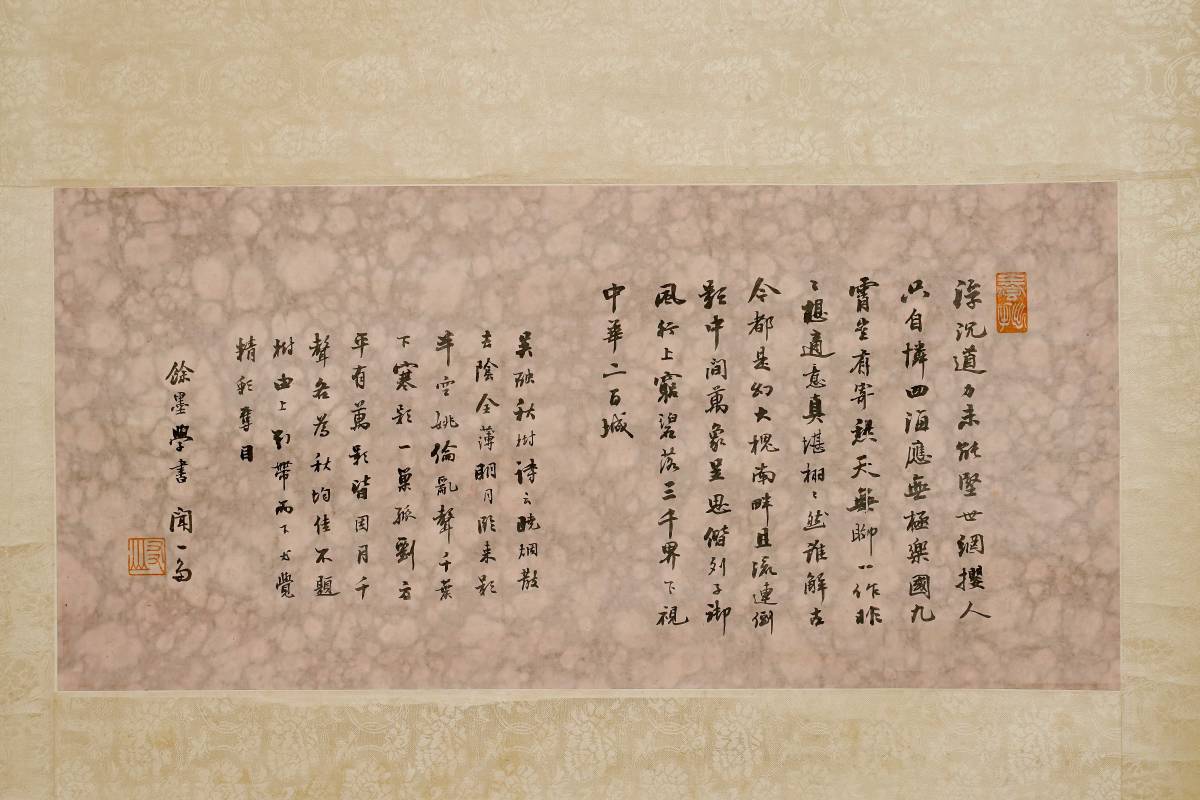 浮沉道力未能堅世網攖人
只自憐四海應無極樂國九
霄豈有寄愁天無聊一作非
〻想適意真堪栩〻然誰解古
今都是幻大槐南畔且流連倒
影中間萬象呈思偕列子御
風行上窮碧落三千界下視
中華二百城
吳融秋樹詩云曉烟散
去陰全薄明月臨來影
半空姚倫亂聲千葉
下寒影一巢孤劉方
平有萬影皆因月千
聲各為秋均佳不題
樹由上到帶而下尤覺
精彩奪目
餘墨學書 聞一多